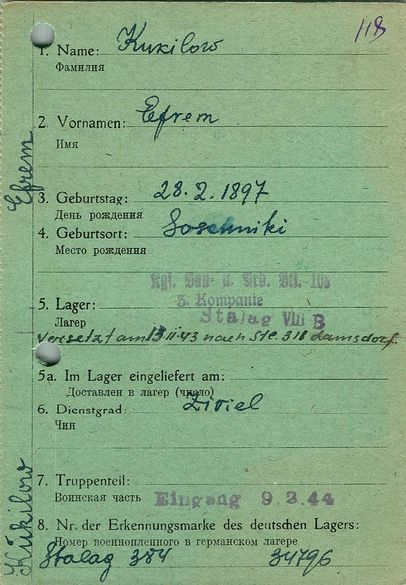 118
1. Name: Kukilow
Фамилия
2. Vornamen: Efrem
Имя
3. Geburtstag: 28.2.1897
День рождения
4. Geburtsort: Soschniki
Место рождения
Kgf. Bau- u. Arb. Btl. 108
3. Kompanie
5. Lager: Stalag VIII B
Лагер
Versetzt am 13.11.43 nach Stl. 318 Lamsdorf.
5a. Im Lager eingeliefert am:
Доставлен в лагер (число)
6. Dienstgrad: Ziviel
Чин
7. Truppenteil:
Воинская часть Eingang 9.3.44
8. Nr. der Erkennungsmarke des deutschen Lagers:
Номер военнопленного в германском лагере
Stalag 384 34796
Efrem
Kukilow